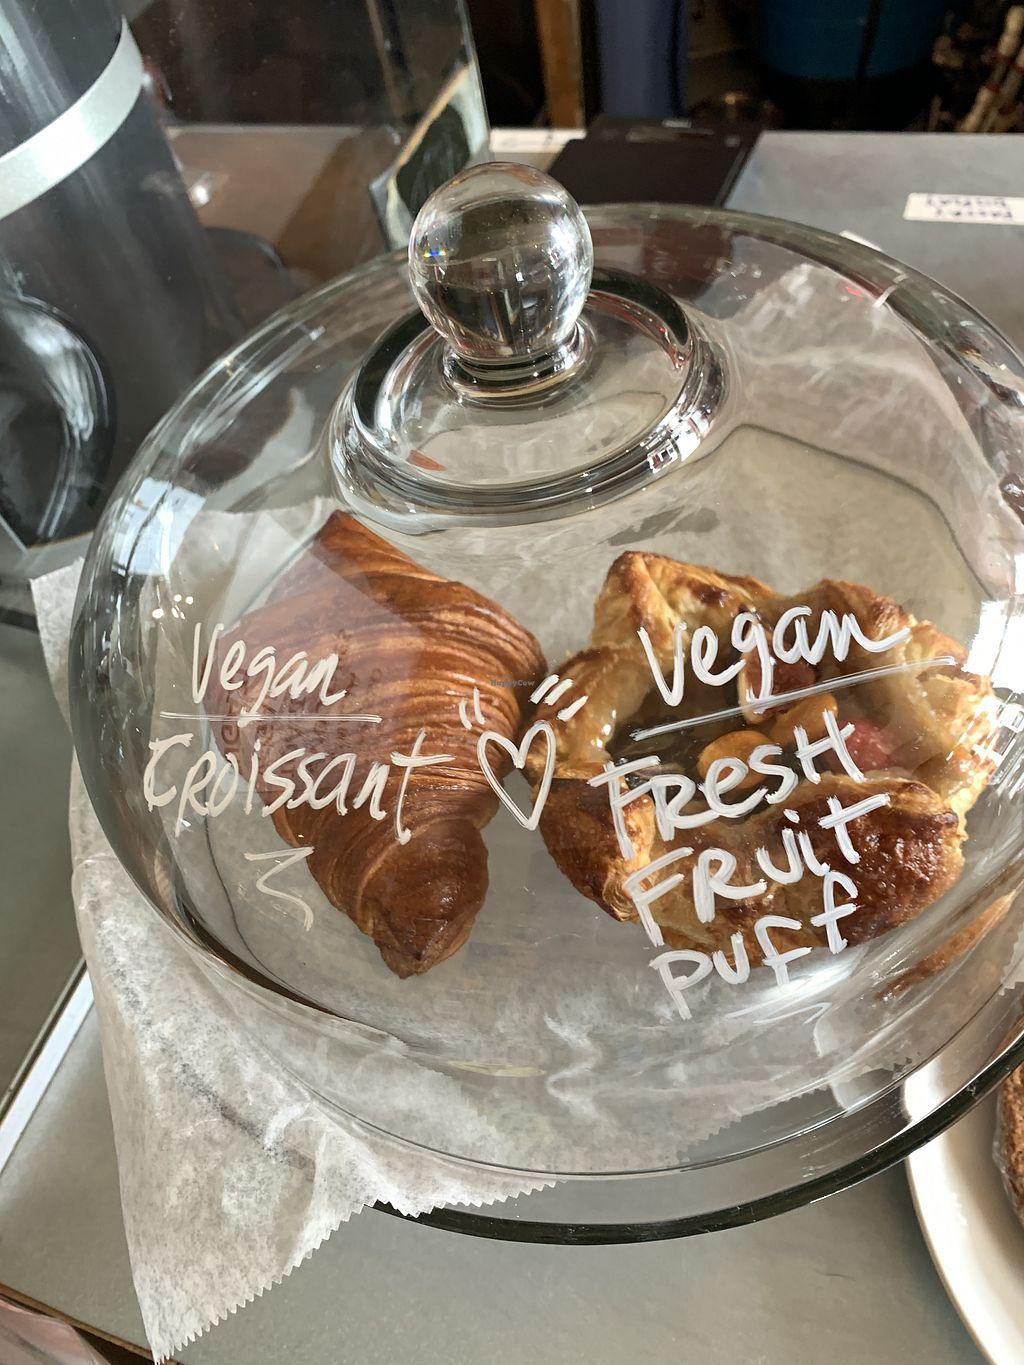 Vegan
Croissant
Vegan
Fresh
Fruit
puff
HappyCow